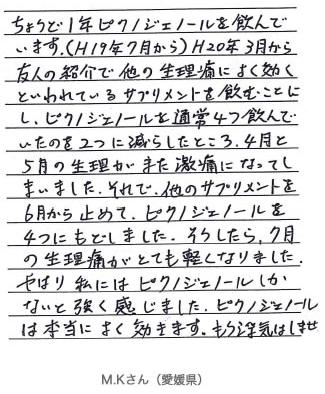 ちょうど1年ピクノジェノールを飲んで
います。(H19年7月から)H20年3月から
友人の紹介で他の生理痛によく効く
といわれているサプリメントを飲むことに
し、ピクノジェノールを通常4つ飲んで
いたのを2つに減らしたところ、4月と
5月の生理がまた激痛になってし
まいました。それで、他のサプリメントを
6月から止めて、ピクノジェノールを
4つにもどしました。そうしたら、7月
の生理痛がとても軽くなりました。
やはり私にはピクノジェノールしか
ないと強く感じました。ピクノジェノール
は本当によく効きます。もう浮気はしませ
M.Kさん（愛媛県）